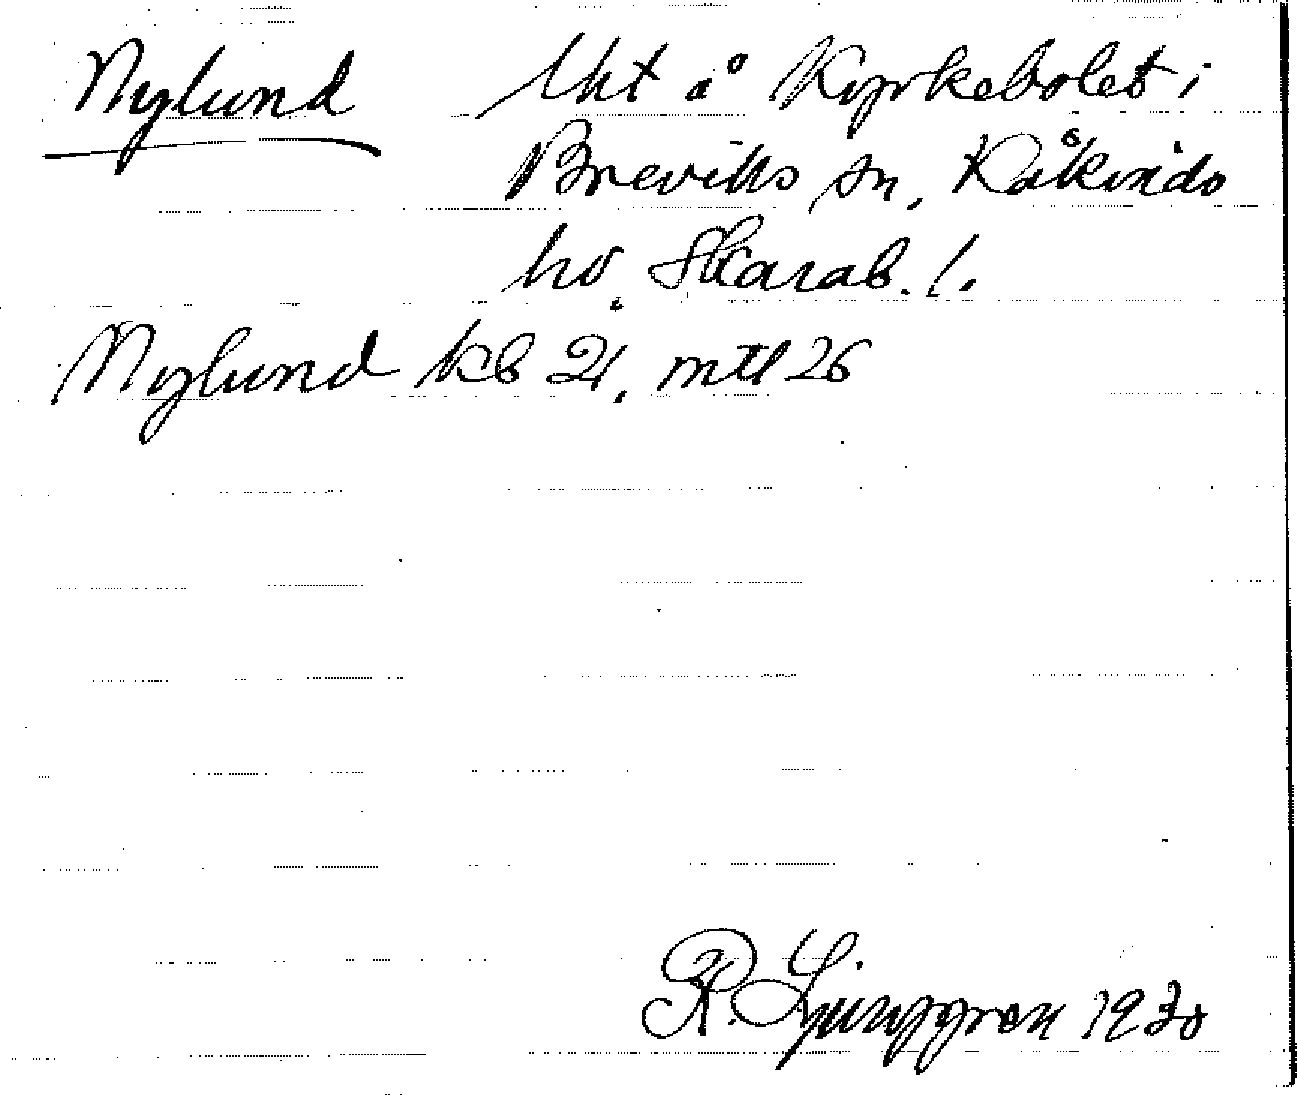 Nylund lht å Kyrkebolet i
Breviks sn, Kåkinds
hd. Skarab. l.
Nylund kb 21, mtl 26
R. Ljunggren 1930